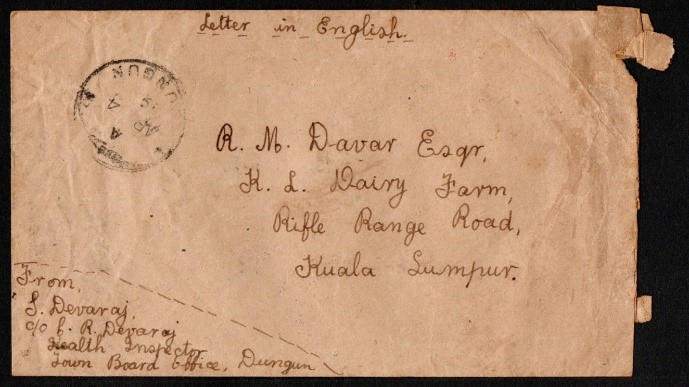 Letter in English.
DUNGUN
A
AP
4
R. M. Davar Esqr,
K. L. Dairy Farm,
Rifle Range Road,
Kuala Lumpur.
From,
S. Devaraj,
c/o E. R. Devaraj
Health Inspector
Town Board Office, Dungun